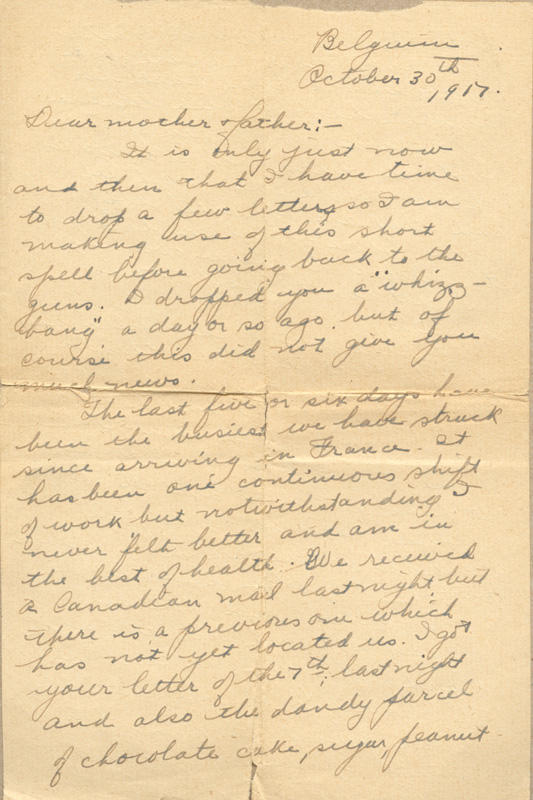 Belguim
October 30th
1917.
Dear mother & father:-
It is only just now
and then that I have time
to drop a few letters so I am
making use of this short
spell before going back to the
guns. I dropped you a "whizz-
bang" a day or so ago. but of
course this did not give you
much news.
The last five or six days have
been the busiest we have struck
since arriving in France. It
has been one continuous shift
of work but notwithstanding I
never felt better and am in
the best of health. We received
a Canadian mail last night but
there is a previous one which
has not yet located us. I got
your letter of the 7th. last night
and also the dandy parcel
of chocolate cake, sugar, peanut